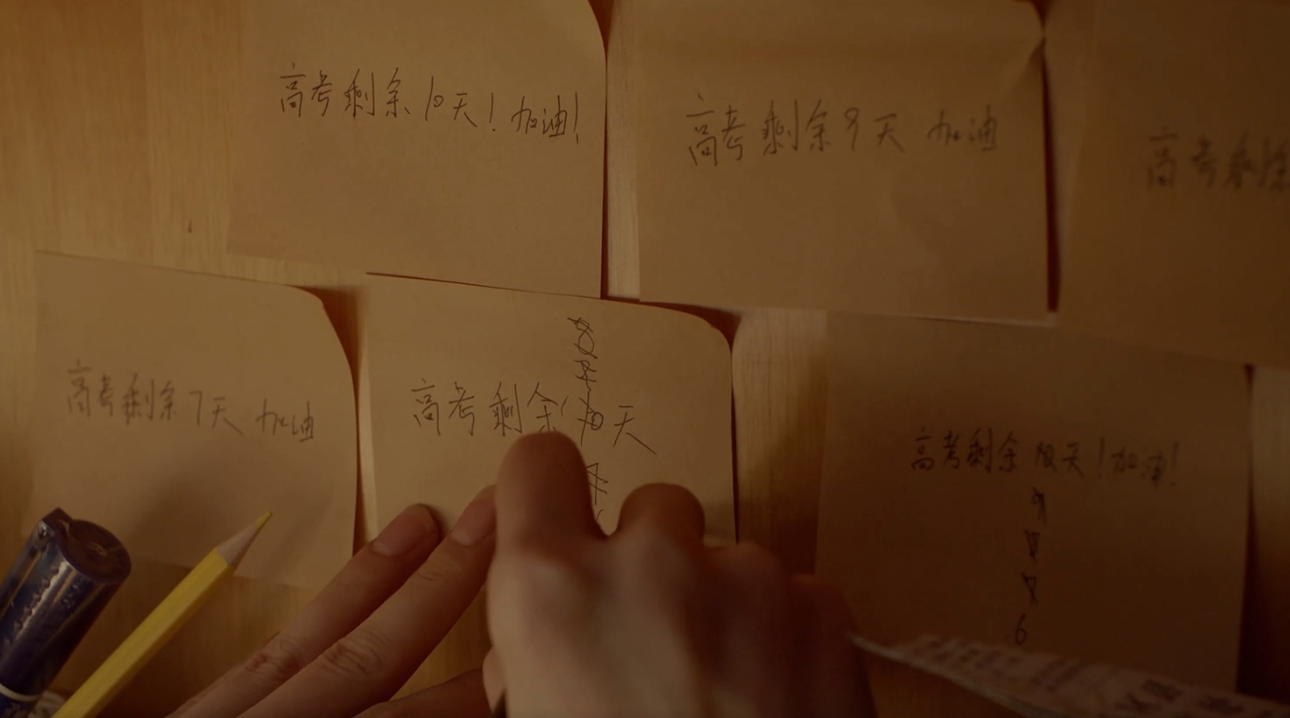 高考剩余10天！加油！
高考剩余9天 加油
高考剩余
高考剩余7天 加油
高考剩余 天
高考剩余 天！加油！
6